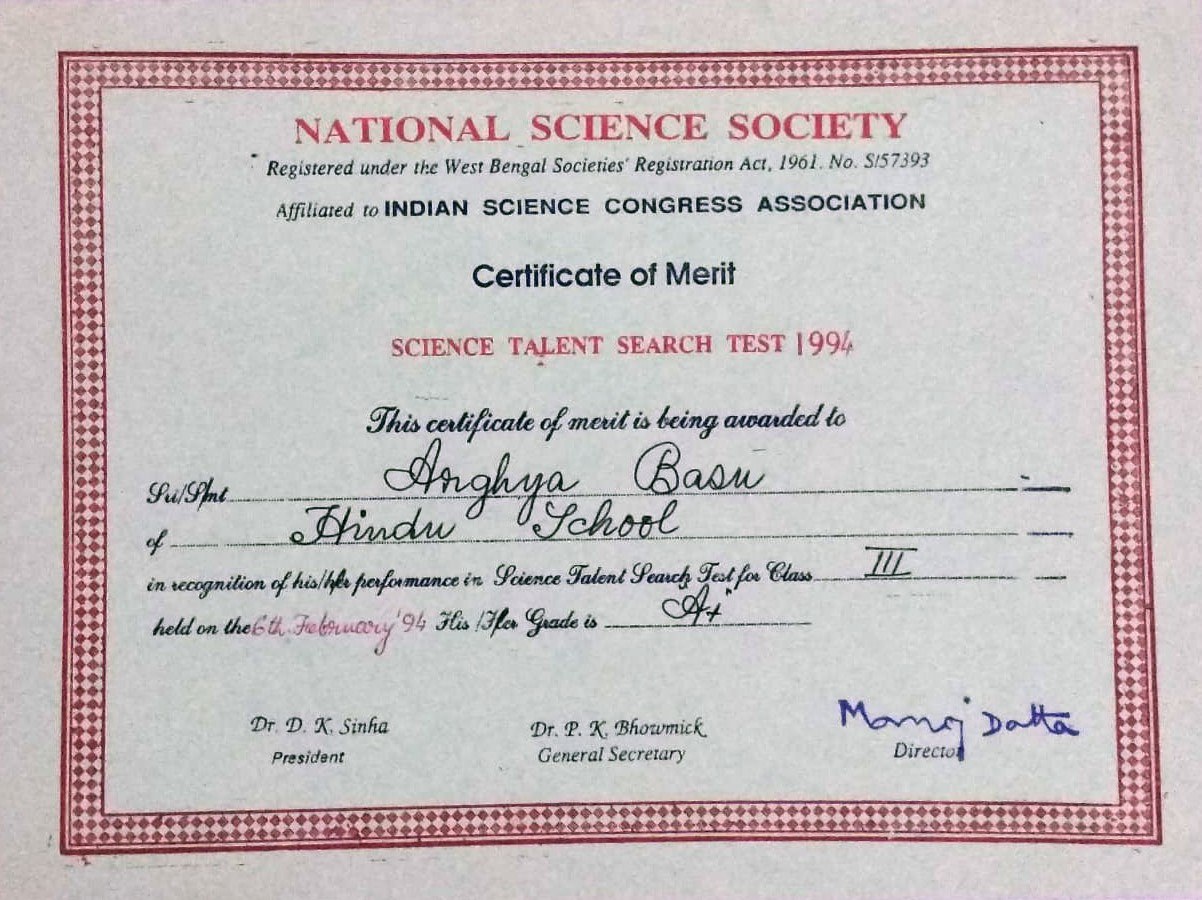 NATIONAL SCIENCE SOCIETY
Registered under the West Bengal Societies' Registration Act, 1961. No. S/57393
Affiliated to INDIAN SCIENCE CONGRESS ASSOCIATION
Certificate of Merit
SCIENCE TALENT SEARCH TEST 1994
This certificate of merit is being awarded to
Sri/Smt Arghya Basu
of Hindu School
in recognition of his/her performance in Science Talent Search Test for Class III
held on the 6th February '94 His/Her Grade is A+
Dr. D. K. Sinha
President
Dr. P. K. Bhowmick
General Secretary
Manoj Datta
Director